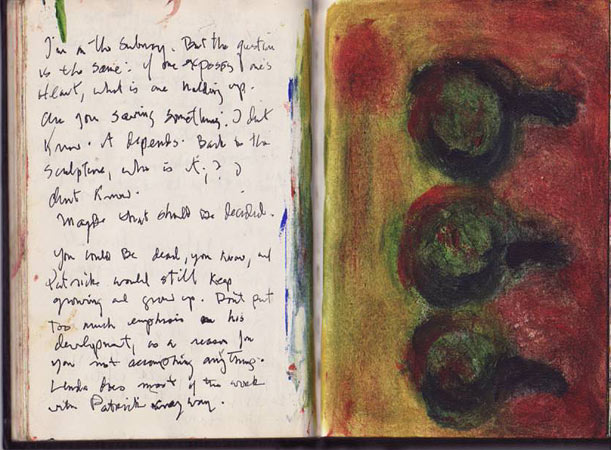 I'm in the subway. But the question
is the same: if one exposes one's
Heart, what is one holding up.
Are you saving something. I don't
Know. It depends. Back to the
sculpture, who is it,? I
don't Know.
Maybe that should be decided.
You could Be dead, you know, and
Patrick would still keep
growing and grow up. Don't put
too much emphasis on his
development, as a reason for
you not accomplishing anything.
Linda does most of the work
with Patrick anyway.